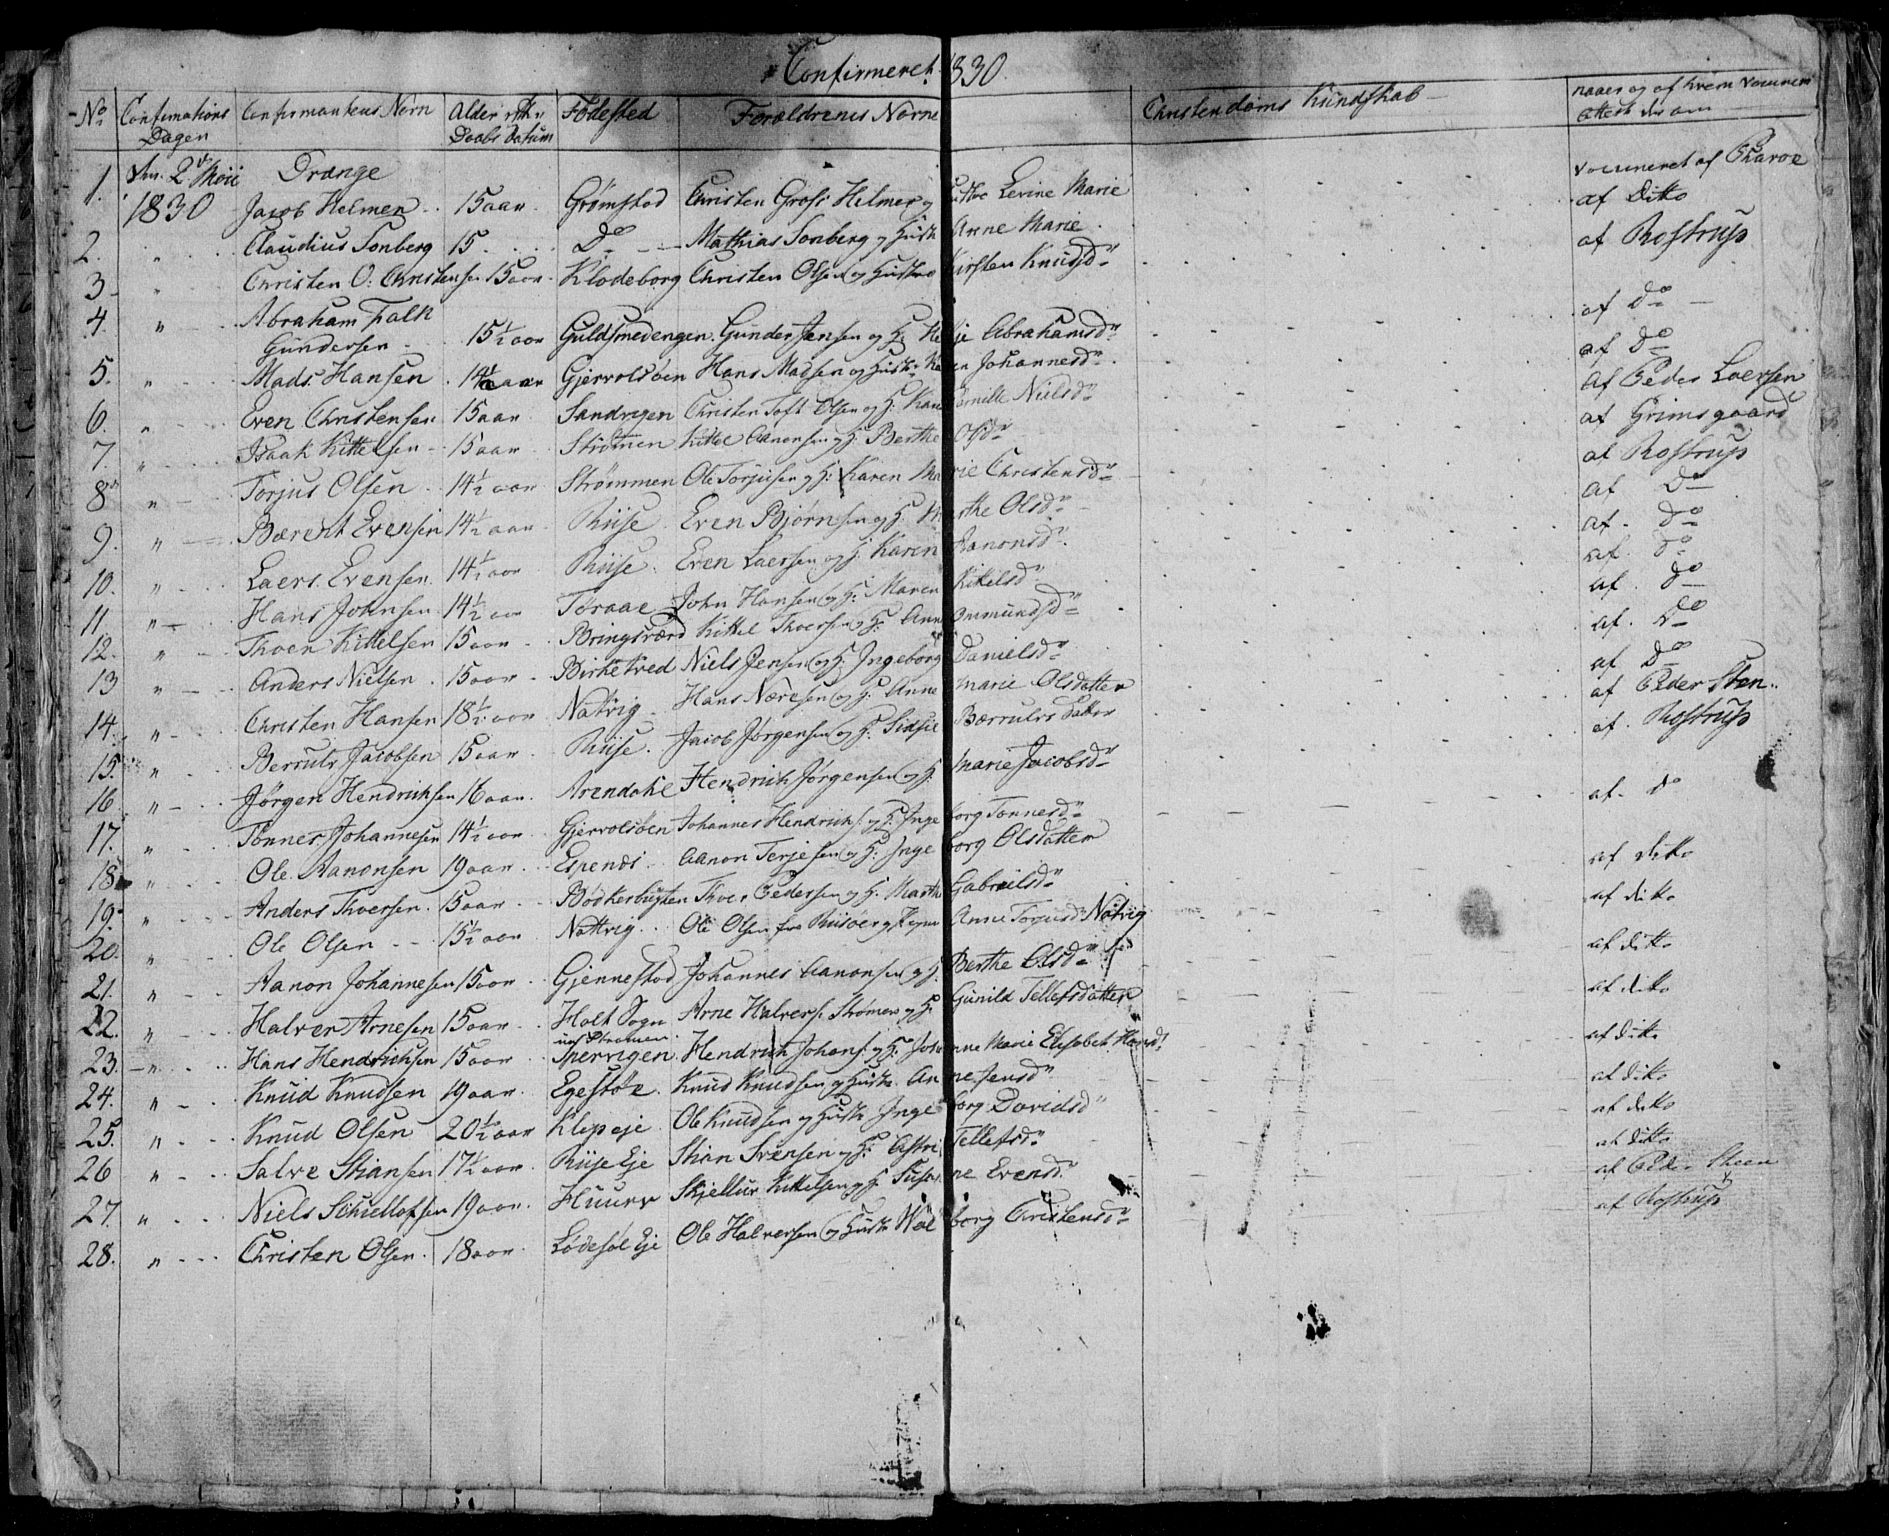 Confirmeret 1830.
No. Confirmations Dagen Confirmantens Navn Alder efter Daabs Datum Fødested Forældrenes Navne Christendoms Kundskab naar og af hvem vaccineret attest derom
1. den 2den Maii 1830 Drænge Jacob Helmer 15 aar Grømstad Christen Gross Helmer og Hustr Levine Marie vaccineret af Tharoe
2. " Claudius Tonberg 15 Do Mathias Tonberg og Hustr Anne Marie af Ditto
3 " Christen O: Christensen 15 aar Klodeborg Christen Olsen og Hustro Kirsten Knudsdr af Rostrup
4. " Abraham Falk
Gundersen 15½ aar Guldsmedengen Gunder Jensen og H: Helje Abrahamsdr af Do
5. " Mads Hansen 14½ aar Gjervolsøen Hans Madsen og Hustr: Karen Johannesdr af Do
6. " Even Christensen 15 aar Sandvigen Christen Toft Olsen og H: Karnille Nielsdr af Peder Laersen
7. " Isaak Kittelsen 15 aar Strømen Kittel Aanonsen og H: Berthe Olsdr af Grimsgaard
8 " Torjus Olsen 14½ aar Strømmen Ole Torjusen og H: Karen Marie Christensdr af Rostrup
9. " Bærent Evensen 14½ aar Riise Even Bjørnsen og H: Marthe Olsdr af Do
10. " Laers Evensen 14½ aar Riise Even Laersen og H: Karen Aanonsd. af Do
11. " Hans Johnsen 14½ aar Toraae John Hansen og H: Maren Kittelsdr af Do
12. " Thoer Kittelsen 15 aar Bringsværd Kittel Thoersen og H: Anne Ommundsdr af Do
13 " Anders Nielsen 15 aar Birketved Niels Jensen og H: Ingeborg Danielsdr af Do
14. " Christen Hansen 18½ aar Natvig Hans Næresen og H: Anne Marie Olsdatter af Do
15. " Berrulv Jacobsen 15 aar Riise Jacob Jørgensen og H: Sidsel Bærrulvs Datter af Peder Sten
16 " Jørgen Hendrichsen 16 aar. Arendahl Hendrich Jørgensen og H: Marie Jacobsdr af Rostrup
17. " Tønnes Johannesen 14½ aar Gjervolsøen Johannes Hendrichs: og H: Ingeborg Tønnesdr af do
18 " Ole Aanonsen 19 aar Espenæs Aanon Terjesen og H: Ingeborg Olsdatter
19. " Anders Thoersen 15 aar Bødkerbugten Thoer Pedersen og H: Marthe Gabrielsdr af ditto
20. " Ole Olsen 15½ aar Nattvig Ole Olsen fra Riisøer og Anne Torjusd: Natvig af ditto
21. " Aanon Johannesen 15 aar Gjennestad Johannes Aanonsen og H: Berthe Olsdr af ditto
22. " Halver Arnesen 15 aar Holt Sogn Arne Halvers: Strømen og H: Gunild Tellefsdatter af ditto
ved Strømen
23. " Hans Hendrichsen 15 aar Sperrigen Hendrich Johans: og H: Johanne Marie Elisabet af ditto
24. " Knud Knudsen 19 aar Egestøe Knud Knudsen og Hustr Anne Jensdr af ditto
25. " Knud Olsen 20½ aar Klep eje Ole Knudsen og Hustr Ingeborg Davidsdr af ditto
26 " Salve Stiansen 17½ aar Riise Eje Stian Svensen og H: Astri Tellefsdr af ditto
27. " Niels Schiellofsen 19 aar Huurv Skjelluv Kittelsen og H: Susanne Evensd: af Peder Steen
28. " Christen Olsen 18 aar Lødesøl Eje Ole Halversen og Hustr Wolborg Christensdr af Rostrup